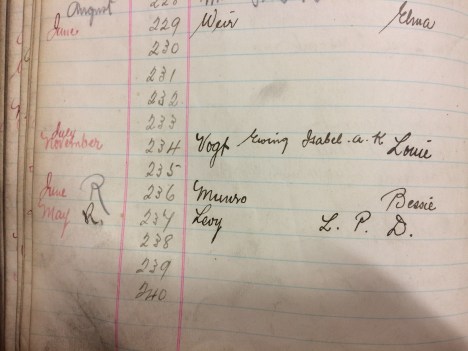 August 228
June 229 Weir Elma
230
231
232
July 233
November 234 Vogt Ewing Isabel. A. K Louie
235
June R 236 Munro Bessie
May R. 237 Levy L. P. D.
238
239
240